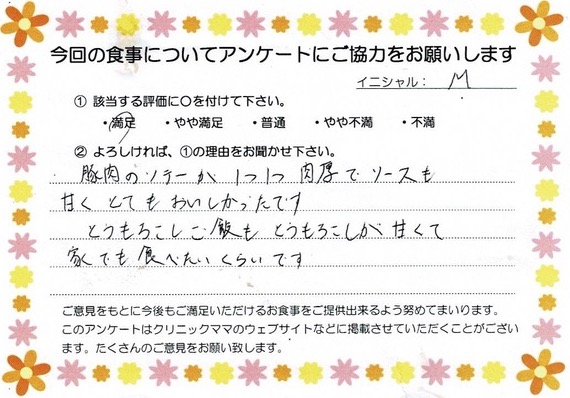 今回の食事についてアンケートにご協力をお願いします
イニシャル： M
① 該当する評価に○を付けて下さい。
・満足 ・やや満足 ・普通 ・やや不満 ・不満
② よろしければ、①の理由をお聞かせ下さい。
豚肉のソテーが 1つ1つ 肉厚で ソースも
甘く とても おいしかったです
とうもろこしご飯も とうもろこしが 甘くて
家でも 食べたい くらいです
ご意見をもとに今後もご満足いただけるお食事をご提供出来るよう努めてまいります。
このアンケートはクリニックママのウェブサイトなどに掲載させていただくことがござい
ます。たくさんのご意見をお願い致します。